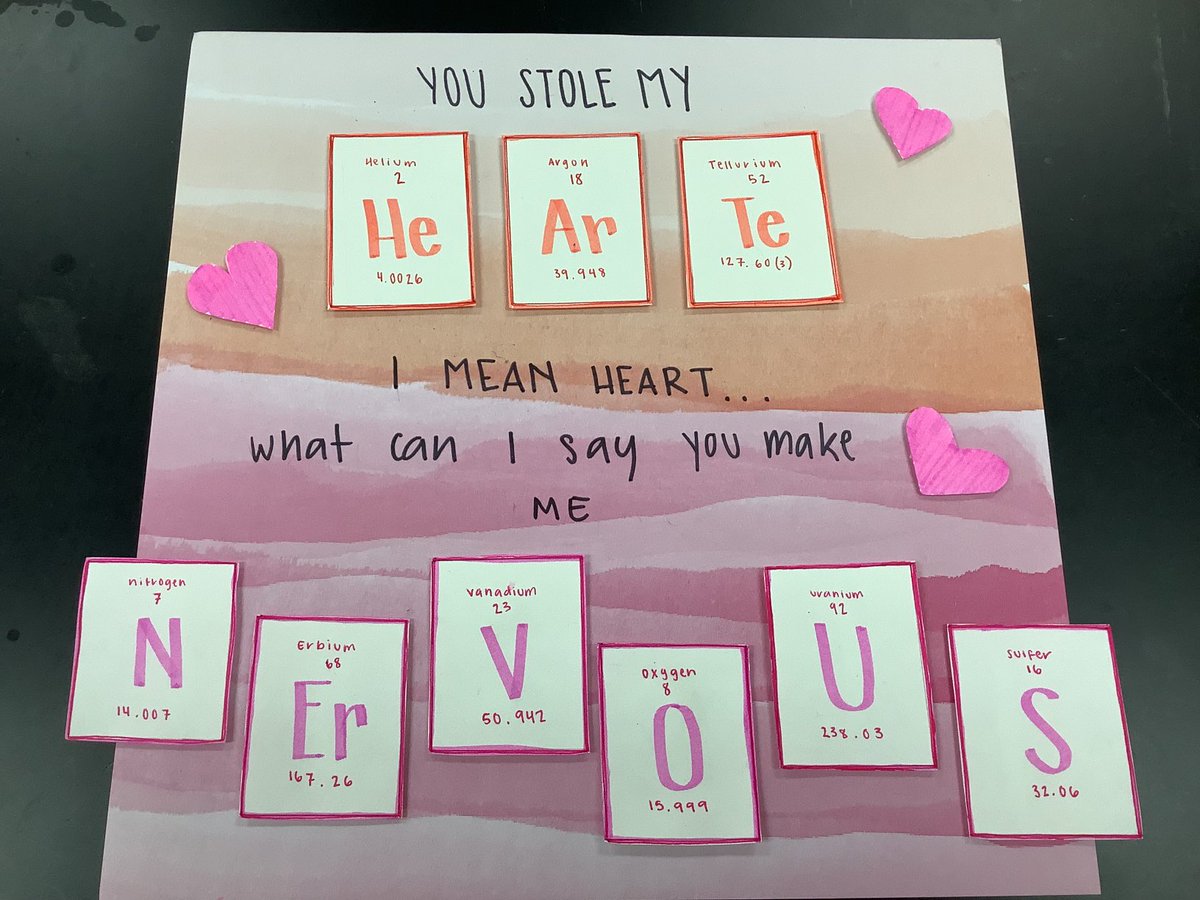 YOU STOLE MY
Helium Argon Tellurium
2 18 52
He Ar Te
4.0026 39.948 127.60(3)
I MEAN HEART...
what can I say you make
ME
nitrogen
7
N
14.007
Erbium
68
Er
167.26
vanadium
23
V
50.942
Oxygen
8
O
15.999
uranium
92
U
238.03
Sulfer
16
S
32.06